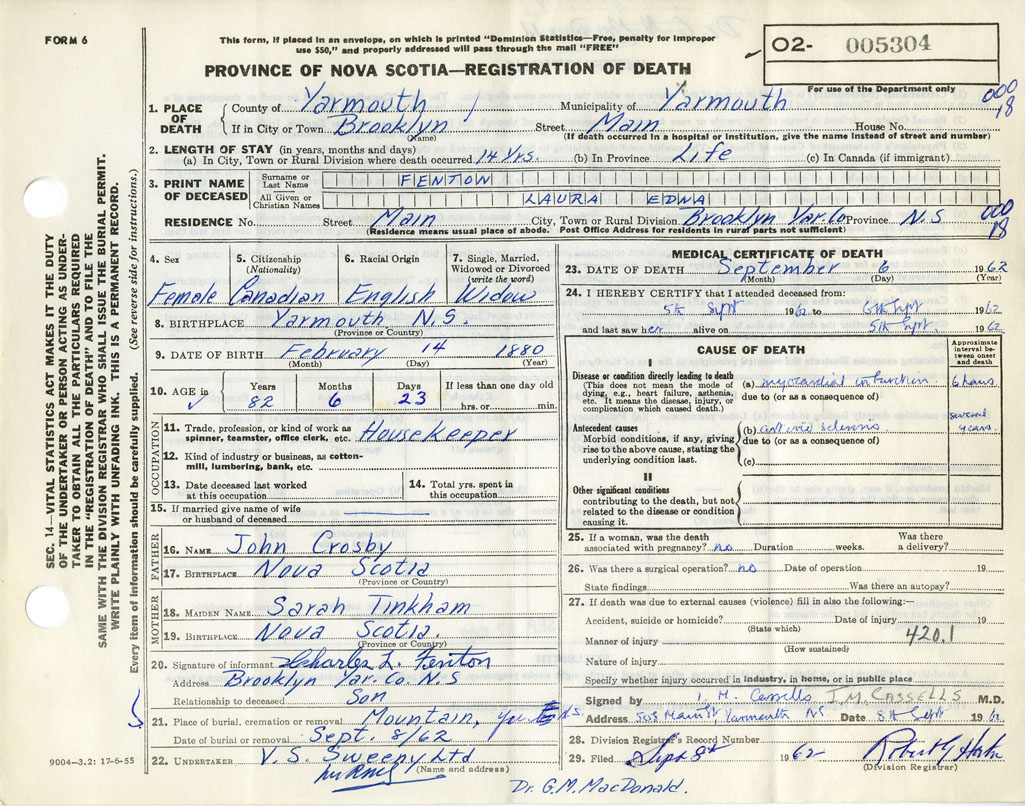 FORM 6
This form, if placed in an envelope, on which is printed "Dominion Statistics—Free, penalty for improper
use $50," and properly addressed will pass through the mail "FREE"
PROVINCE OF NOVA SCOTIA—REGISTRATION OF DEATH
02- 005304
For use of the Department only
000
18
1. PLACE OF DEATH
County of Yarmouth Municipality of Yarmouth
If in City or Town Brooklyn Street Main House No.
(Name) (If death occurred in a hospital or institution, give the name instead of street and number)
2. LENGTH OF STAY (in years, months and days)
(a) In City, Town or Rural Division where death occurred 14 Yrs. (b) In Province Life (c) In Canada (if immigrant)
3. PRINT NAME OF DECEASED
Surname or Last Name FENTON
All Given or Christian Names LAURA EDNA
RESIDENCE No. Street Main City, Town or Rural Division Brooklyn Yar. Co Province N.S
(Residence means usual place of abode. Post Office Address for residents in rural parts not sufficient)
000
18
SEC. 14—VITAL STATISTICS ACT MAKES IT THE DUTY
OF THE UNDERTAKER OR PERSON ACTING AS UNDER-
TAKER TO OBTAIN ALL THE PARTICULARS REQUIRED
IN THE "REGISTRATION OF DEATH" AND TO FILE THE
SAME WITH THE DIVISION REGISTRAR WHO SHALL ISSUE THE BURIAL PERMIT.
WRITE PLAINLY WITH UNFADING INK. THIS IS A PERMANENT RECORD.
Every item of Information should be carefully supplied. (See reverse side for instructions.)
4. Sex
Female
5. Citizenship
(Nationality)
Canadian
6. Racial Origin
English
7. Single, Married,
Widowed or Divorced
(write the word)
Widow
8. BIRTHPLACE Yarmouth N.S.
(Province or Country)
9. DATE OF BIRTH February 14 1880
(Month) (Day) (Year)
10. AGE in Years Months Days If less than one day old
82 6 23 hrs. or min.
OCCUPATION
11. Trade, profession, or kind of work as
spinner, teamster, office clerk, etc. Housekeeper
12. Kind of industry or business, as cotton-
mill, lumbering, bank, etc.
13. Date deceased last worked
at this occupation
14. Total yrs. spent in
this occupation
15. If married give name of wife
or husband of deceased
FATHER
16. NAME John Crosby
17. BIRTHPLACE Nova Scotia
(Province or Country)
MOTHER
18. MAIDEN NAME Sarah Tinkham
19. BIRTHPLACE Nova Scotia.
(Province or Country)
20. Signature of informant Charles L. Fenton
Address Brooklyn Yar. Co. N.S
Relationship to deceased Son
21. Place of burial, cremation or removal Mountain, N.S.
Date of burial or removal Sept. 8/62
22. UNDERTAKER V. S. Sweeny Ltd
(Name and address)
9004—3.2: 17-6-55
MEDICAL CERTIFICATE OF DEATH
23. DATE OF DEATH September 6 1962
(Month) (Day) (Year)
24. I HEREBY CERTIFY that I attended deceased from:
5th Sept 1962 to 6th Sept 1962
and last saw her alive on 5th Sept. 1962
CAUSE OF DEATH
Approximate
interval be-
tween onset
and death
I
Disease or condition directly leading to death
(This does not mean the mode of
dying, e.g., heart failure, asthenia,
etc. It means the disease, injury, or
complication which caused death.)
(a) myocardial infarction 6 hours
due to (or as a consequence of)
Antecedent causes
Morbid conditions, if any, giving
rise to the above cause, stating the
underlying condition last.
(b) arterio sclerosis several years.
due to (or as a consequence of)
(c)
II
Other significant conditions
contributing to the death, but not
related to the disease or condition
causing it.
25. If a woman, was the death
associated with pregnancy? no Duration weeks. Was there
a delivery?
26. Was there a surgical operation? no Date of operation 19
State findings Was there an autopsy?
27. If death was due to external causes (violence) fill in also the following:—
Accident, suicide or homicide? Date of injury 19
(State which)
Manner of injury 420.1
(How sustained)
Nature of injury
Specify whether injury occurred in industry, in home, or in public place
Signed by I. M. Cassells I.M. CASSELLS M.D.
Address 565 Main St Yarmouth NS Date 8th Sept 1962
28. Division Registrar's Record Number
29. Filed Sept 8th 1962
(Division Registrar)
Dr. G.M. MacDonald.